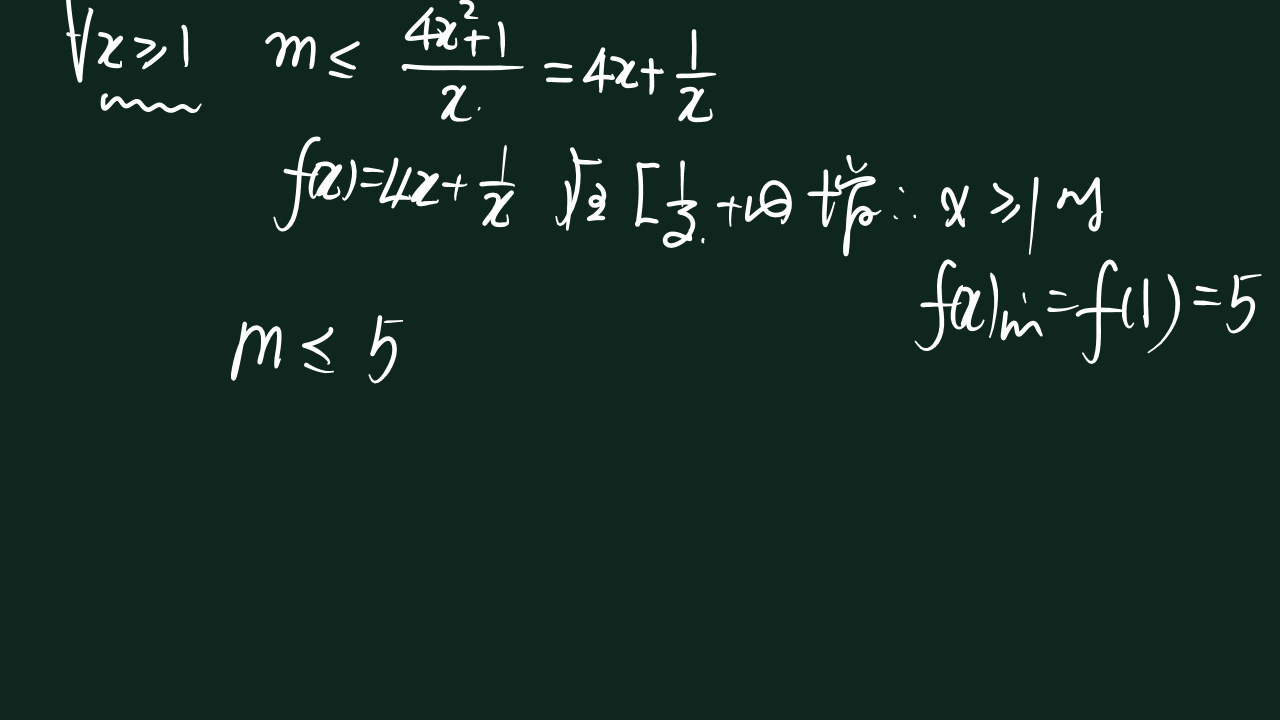 ∀x≥1 m ≤ (4x²+1)/x = 4x + 1/x
f(x)=4x+1/x [1/2, +∞) ∴ x≥1 时
f(x)min = f(1) = 5
m ≤ 5